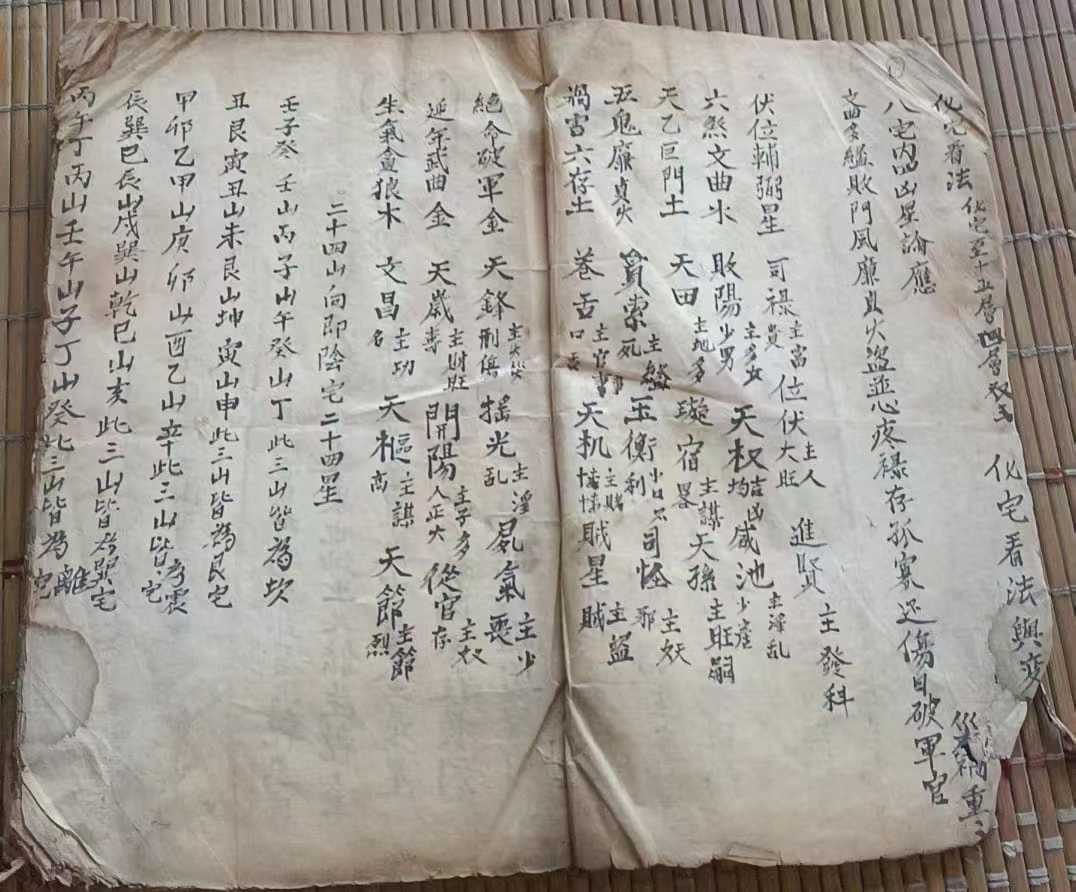 化宅看法 化宅至十五層 四層双 化宅看法與变
八宅内四凶星論應
文曲 敗門風廉貞火盗並心疼禄存孤寡还傷目破軍官
災禍重
伏位輔弼星 司禄主富貴 位伏主人大旺 進賢主發科
六煞文曲水 敗陽主多女少男 天权吉凶均 咸池主淫乱少産
天乙巨門土 天田主地多 璇宿主謀畧 天孫主旺嗣
五鬼廉貞火 貫索主死 玉衡 司怪主妖邪
禍害六存土 卷舌主官事口舌 天机主賭 賊星主盗賊
絕命破軍金 天鋒主火災刑傷 摇光主淫乱 死氣主少喪
延年武曲金 天歲主財旺壽 開陽主子多人正大 從官主奴存
生氣貪狼木 文昌主功名 天樞主謀高 天節主節烈
二十四山向即陰宅二十四星
壬子癸 壬山丙子山午癸山丁此三山皆為坎
丑艮寅丑山未艮山坤寅山申此三山皆為艮宅
甲卯乙甲山庚卯山酉乙山辛此三山皆為震宅
辰巽巳辰山戌巽山乾巳山亥此三山皆為巽宅
丙午丁丙山壬午山子丁山癸此三山皆為離宅